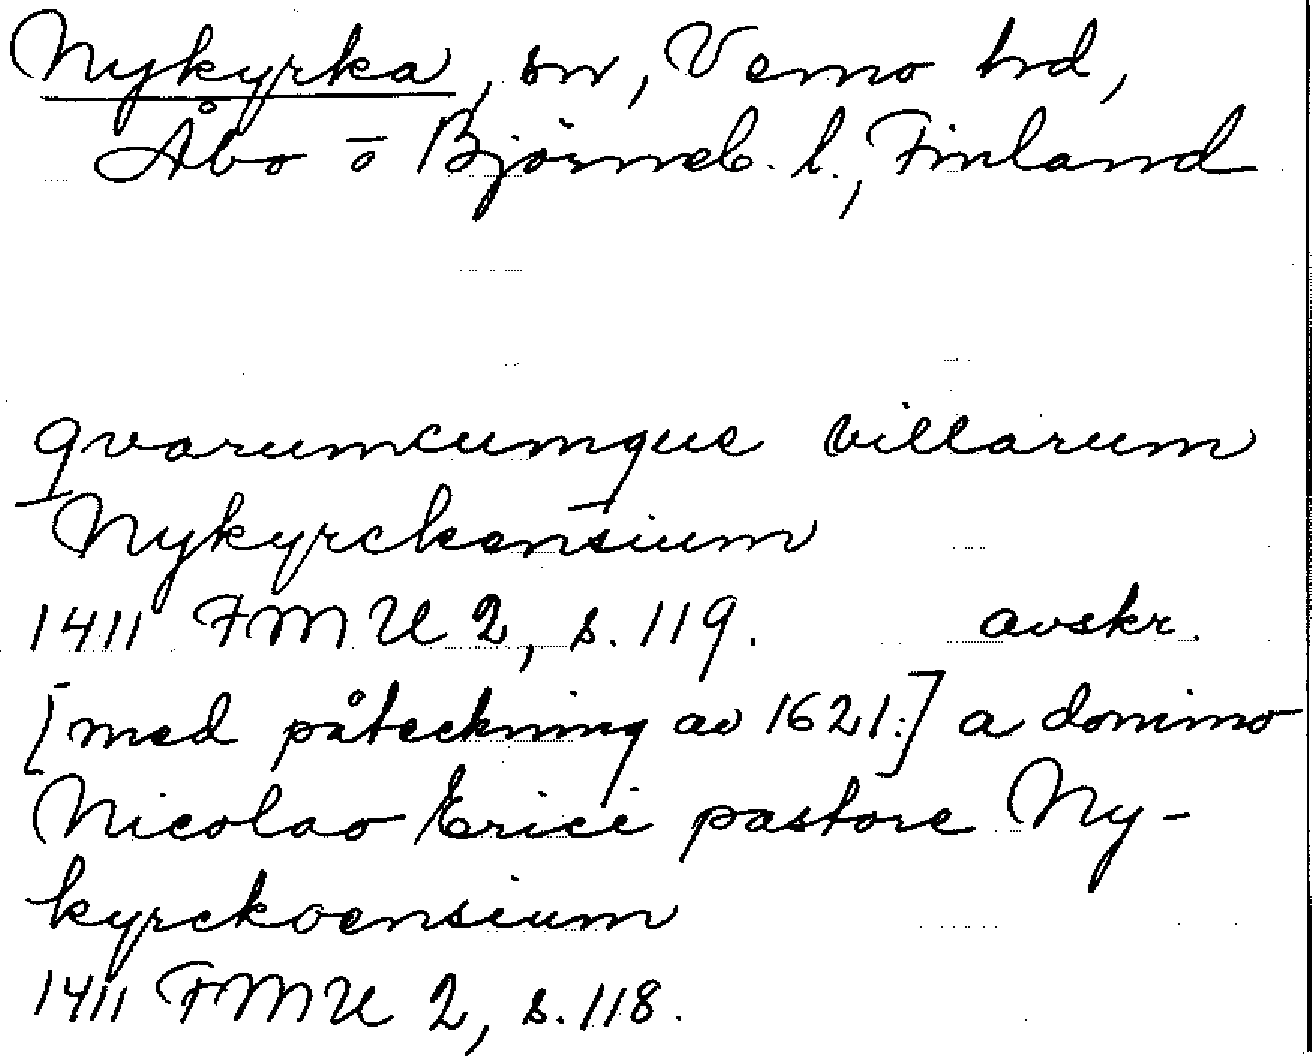 Nykyrka, sn, Vemo hd,
Åbo o Björneb. l., Finland
qvarumcumque villarum
Nykyrckensium
1411 FMU 2, s. 119. avskr.
[med påteckning av 1621:] a domino
Nicolao Erici pastore Ny-
kyrckoensium
1411 FMU 2, s. 118.